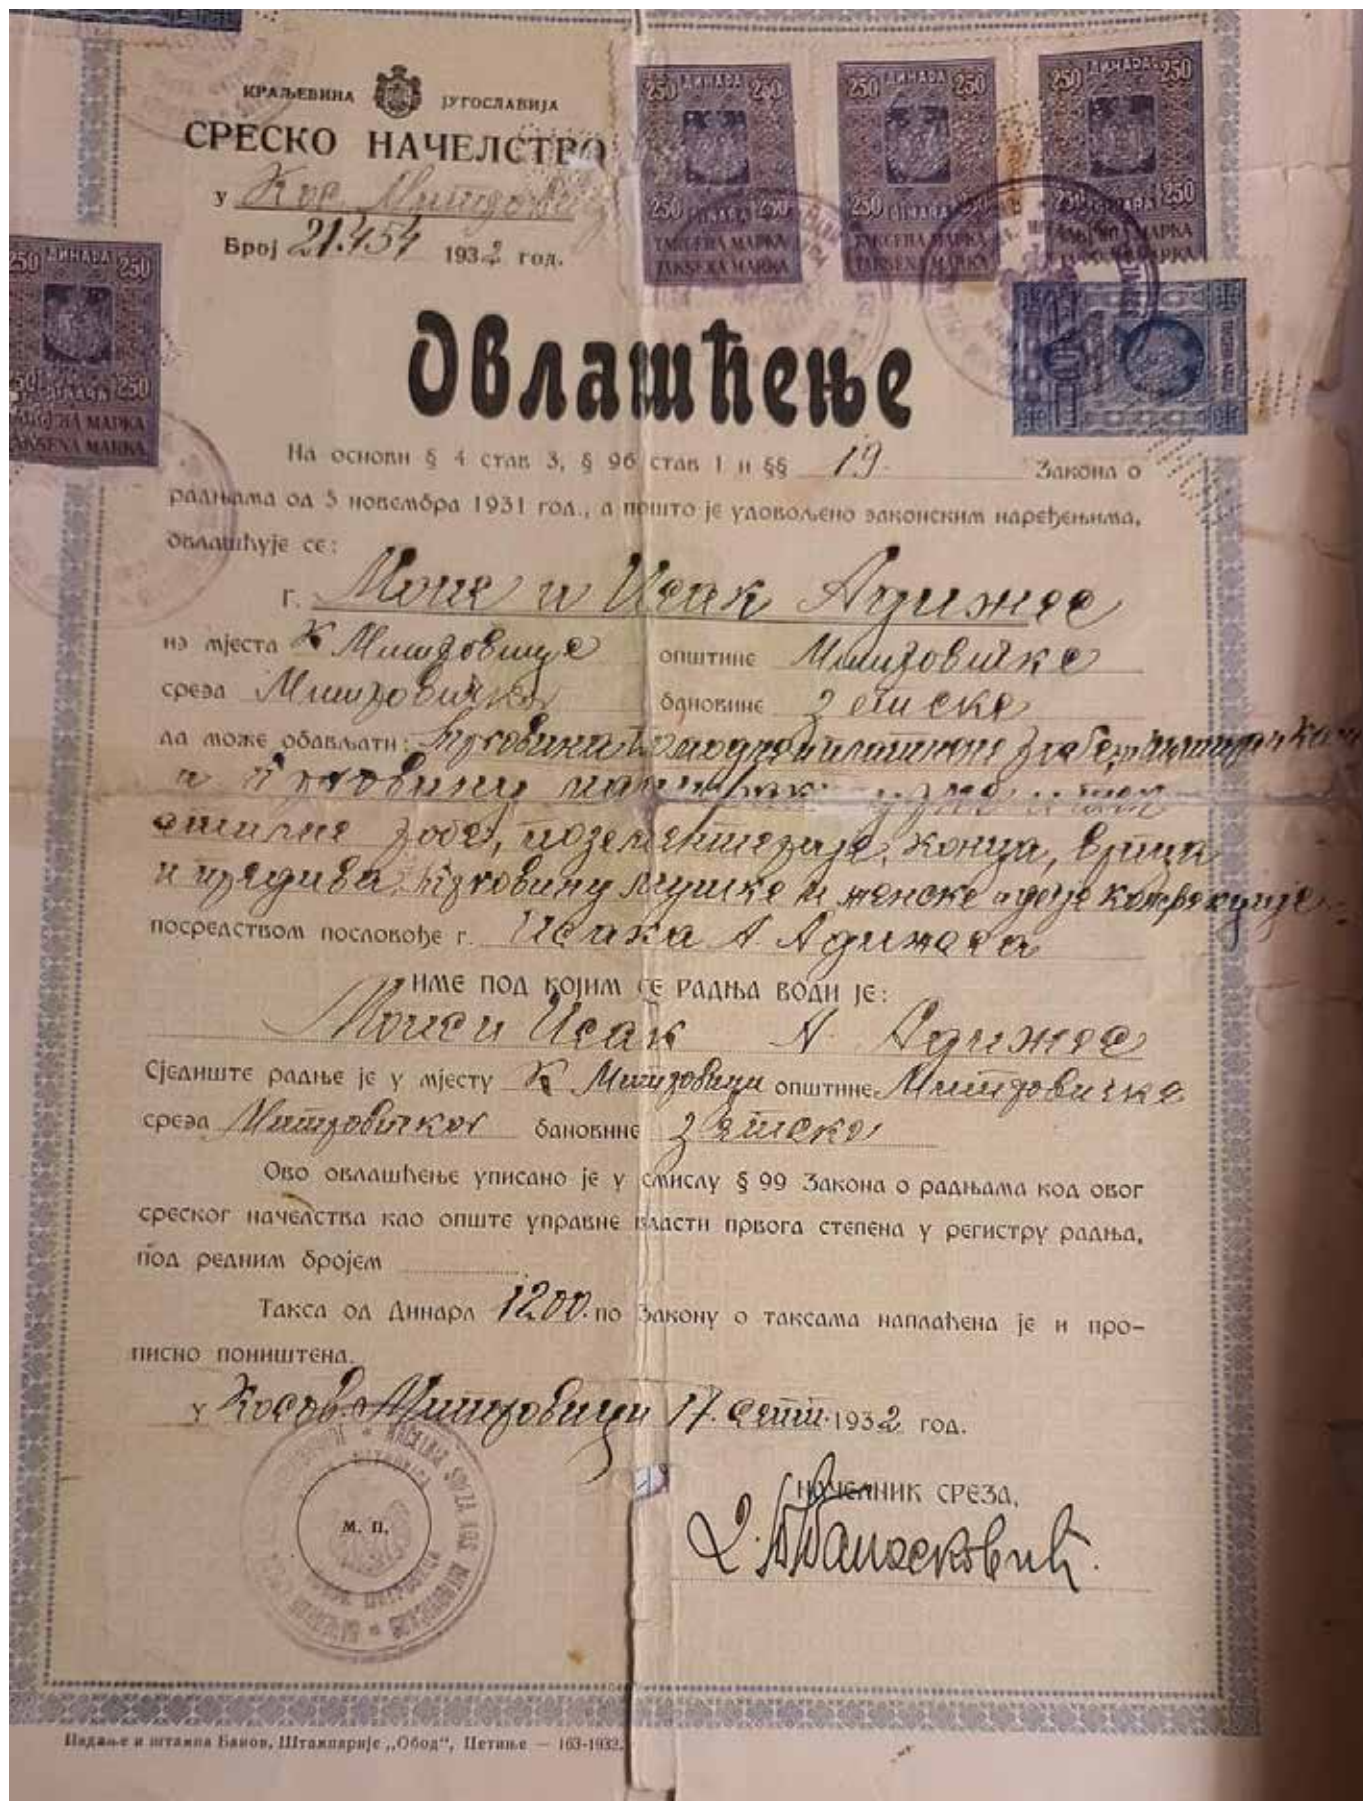 КРАЉЕВИНА ЈУГОСЛАВИЈА
СРЕСКО НАЧЕЛСТВО
у Кос Митровици
Број 21.454 1932 год.
250 ДИНАРА 250
250 DINARA 250
ТАКСЕНА МАРКА
TAKSENA MARKA
250 ДИНАРА 250
250 DINARA 250
ТАКСЕНА МАРКА
TAKSENA MARKA
250 ДИНАРА 250
250 250
250 ДИНАРА 250
250
ТАКСЕНА МАРКА
TAKSENA MARKA
Овлашћење
На основи § 4 став 3, § 96 став 1 и §§ 19. Закона о
радњама од 5 новембра 1931 год., а пошто је удовољено законским наређењима,
овлашћује се:
г. Моис и Исак Адижес
из мјеста К Митровице општине Митровичке
среза Митровичког бановине Зетске
да може обављати: трговина
и трговину
робе, позементерије, конца, врпца
и предива. трговину мушке и женске и дечје конфекције
посредством пословође г. Исака А. Адижеса
ИМЕ ПОД КОЈИМ СЕ РАДЊА ВОДИ ЈЕ:
Моис и Исак А. Адижес
Сједиште радње је у мјесту К Митровици општине Митровичке
среза Митровичког бановине Зетске
Ово овлашћење уписано је у смислу § 99 Закона о радњама код овог
среског начелства као опште управне власти првога степена у регистру радња,
под редним бројем
Такса од Динара 1200. по Закону о таксама наплаћена је и про-
писно поништена.
у Косов. Митровици 17. септ. 1932 год.
НАЧЕЛНИК СРЕЗА,
М. П.
Издање и штампа Банов. Штампарије „Обод“, Цетиње — 163-1932.